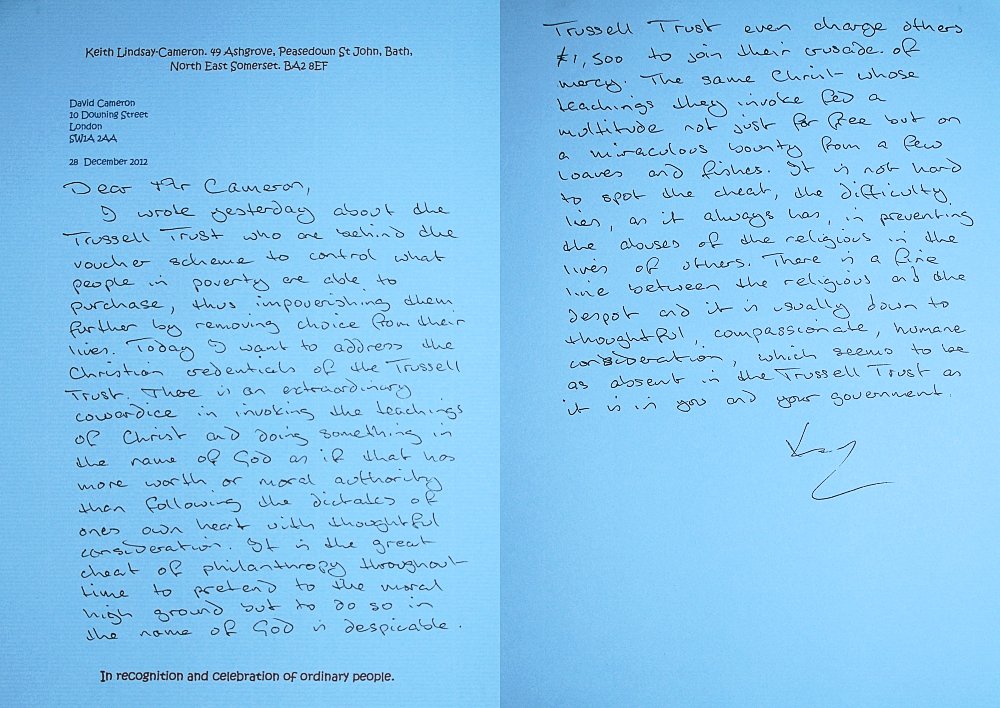 Keith Lindsay-Cameron. 49 Ashgrove, Peasedown St John, Bath,
North East Somerset. BA2 8EF
David Cameron
10 Downing Street
London
SW1A 2AA
28 December 2012
Dear Mr Cameron,
I wrote yesterday about the
Trussell Trust who are behind the
voucher scheme to control what
people in poverty are able to
purchase, thus impoverishing them
further by removing choice from their
lives. Today I want to address the
Christian credentials of the Trussell
Trust. There is an extraordinary
cowardice in invoking the teachings
of Christ and doing something in
the name of God as if that has
more worth or moral authority
than following the dictates of
ones own heart with thoughtful
consideration. It is the great
cheat of philanthropy throughout
time to pretend to the moral
high ground but to do so in
the name of God is despicable.
In recognition and celebration of ordinary people.
Trussell Trust even charge others
£1,500 to join their crusade of
mercy. The same Christ whose
teachings they invoke fed a
multitude not just for free but on
a miraculous bounty from a few
loaves and fishes. It is not hard
to spot the cheat, the difficulty
lies, as it always has, in preventing
the abuses of the religious in the
lives of others. There is a fine
line between the religious and the
despot and it is usually down to
thoughtful, compassionate, humane
consideration, which seems to be
as absent in the Trussell Trust as
it is in you and your government.